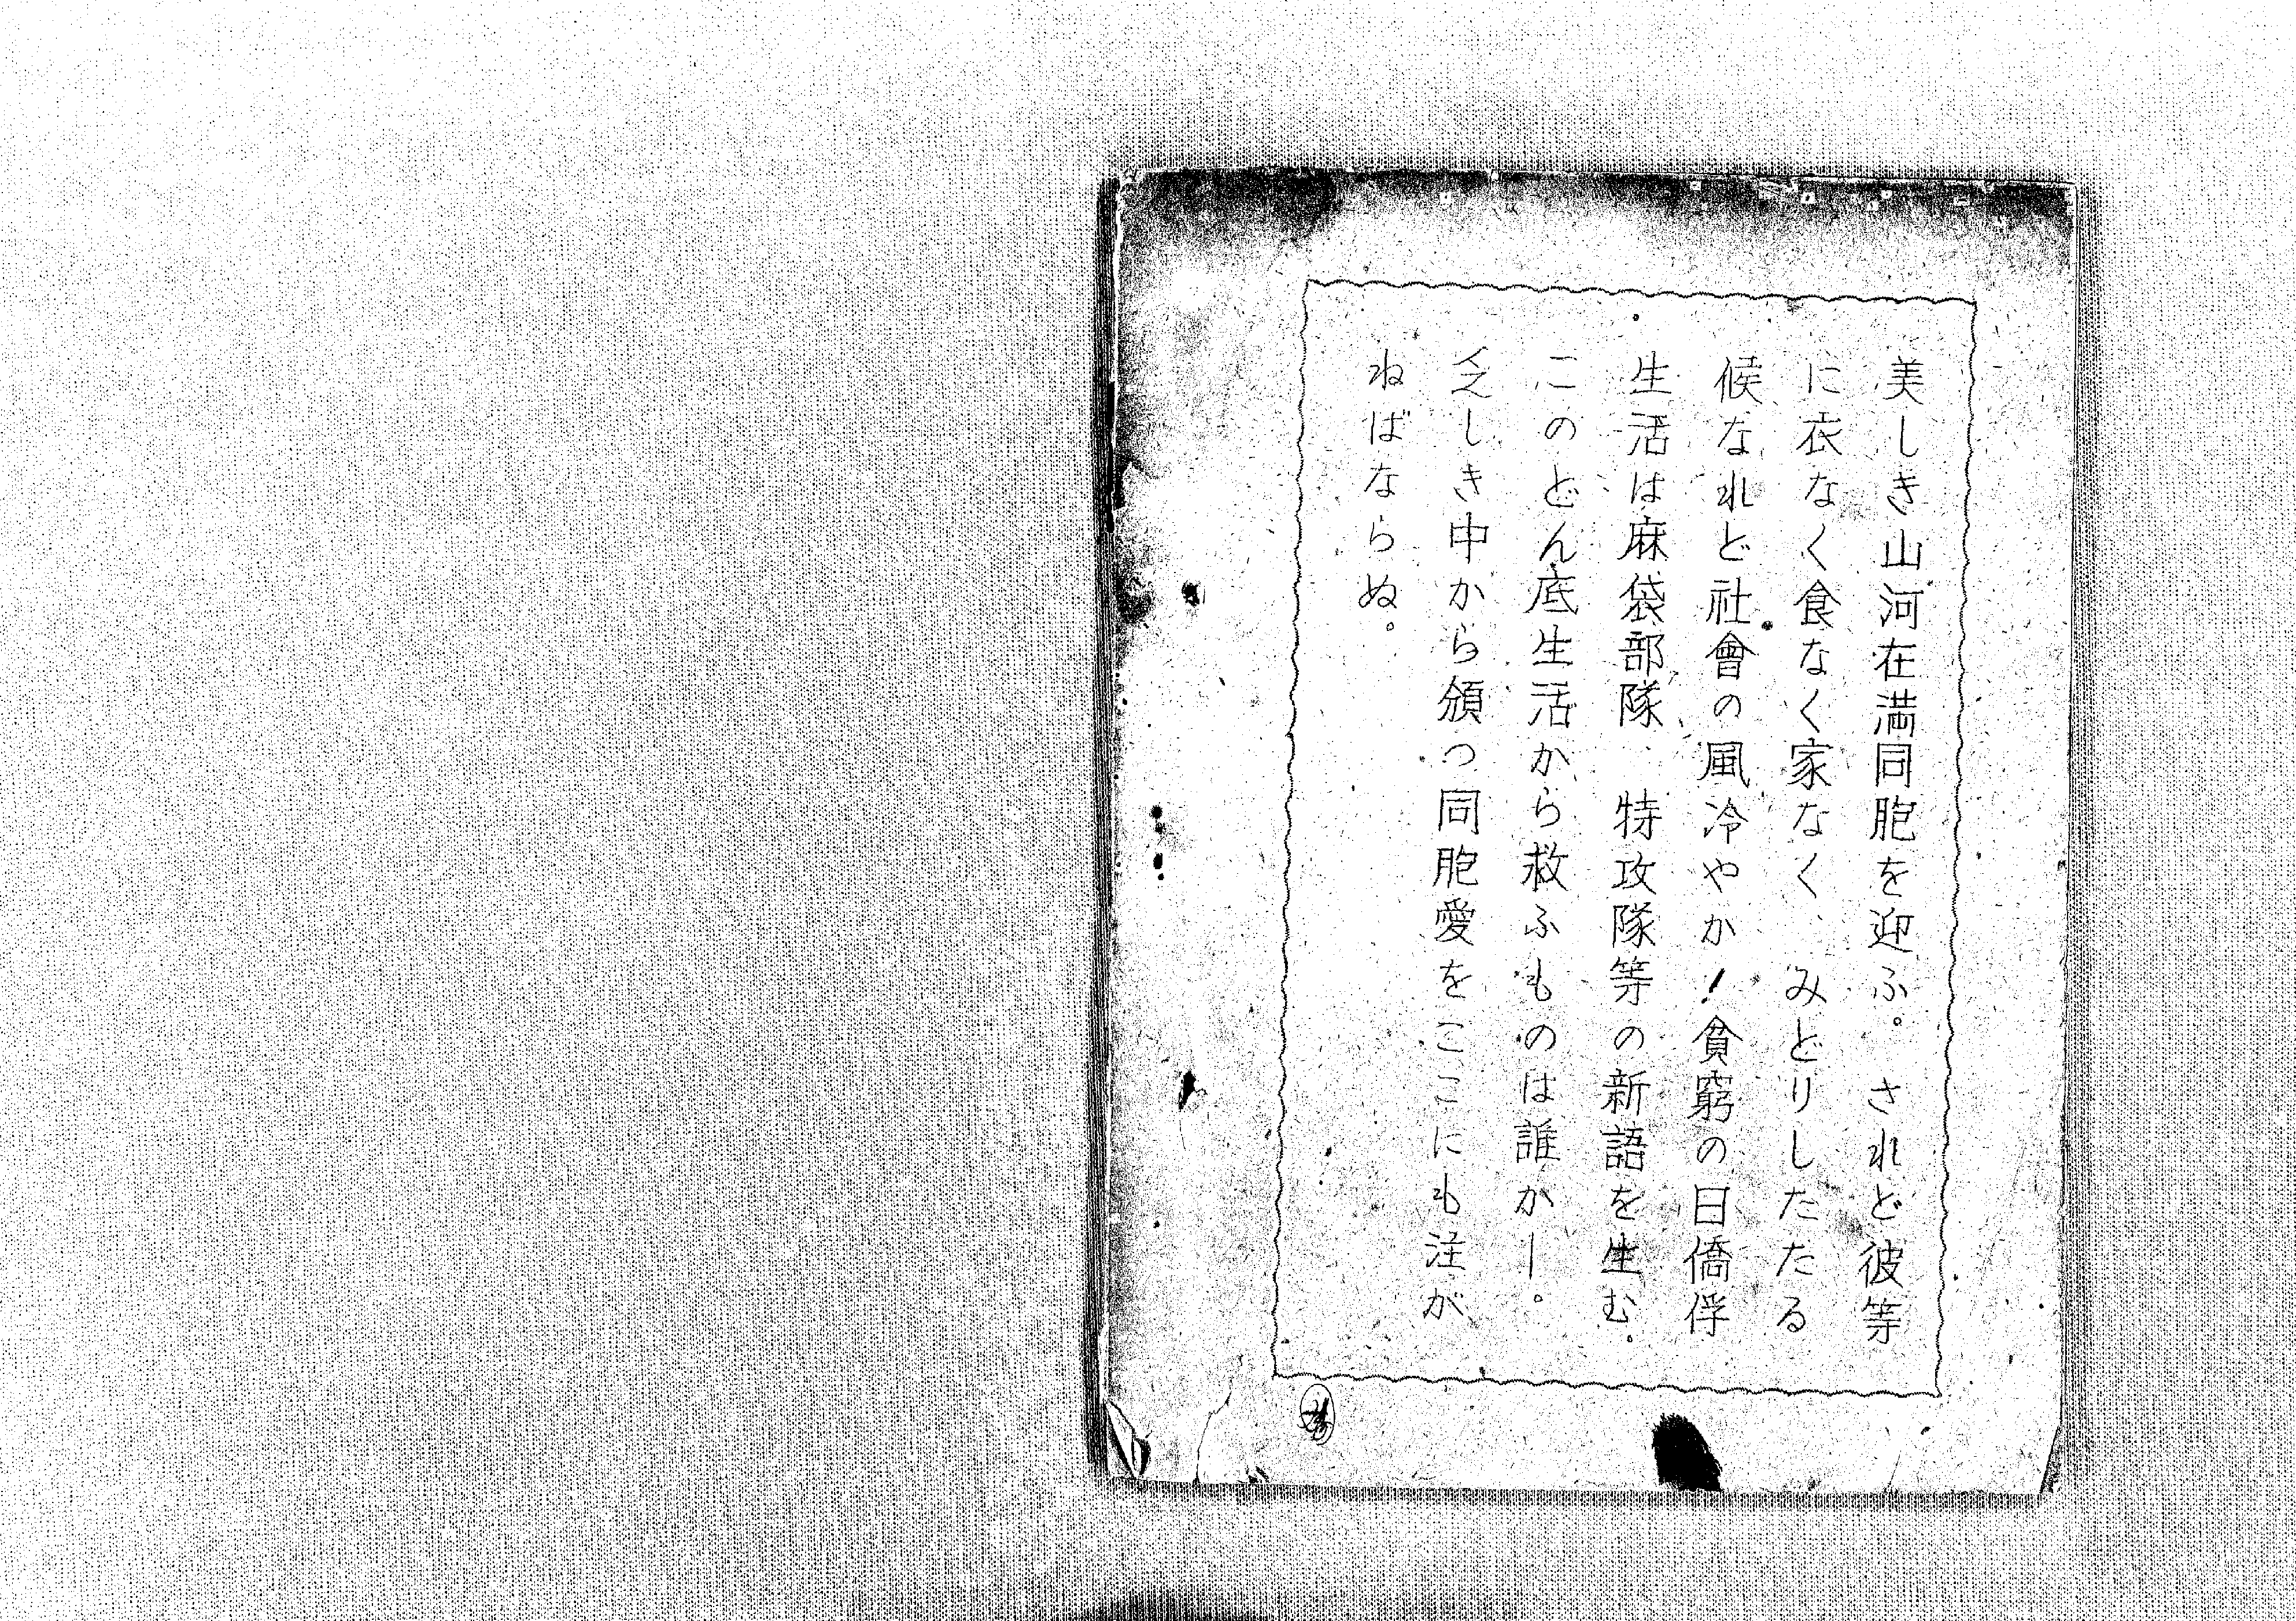 美しき山河在満同胞を迎ふ。されど彼等
に衣なく食なく家なく、みどりしたたる
候なれど社會の風冷やか!貧窮の日僑俘
生活は麻袋部隊、特攻隊等の新語を生む。
このどん底生活から救ふものは誰か―。
乏しき中から頒つ同胞愛をここにも注が
ねばならぬ。